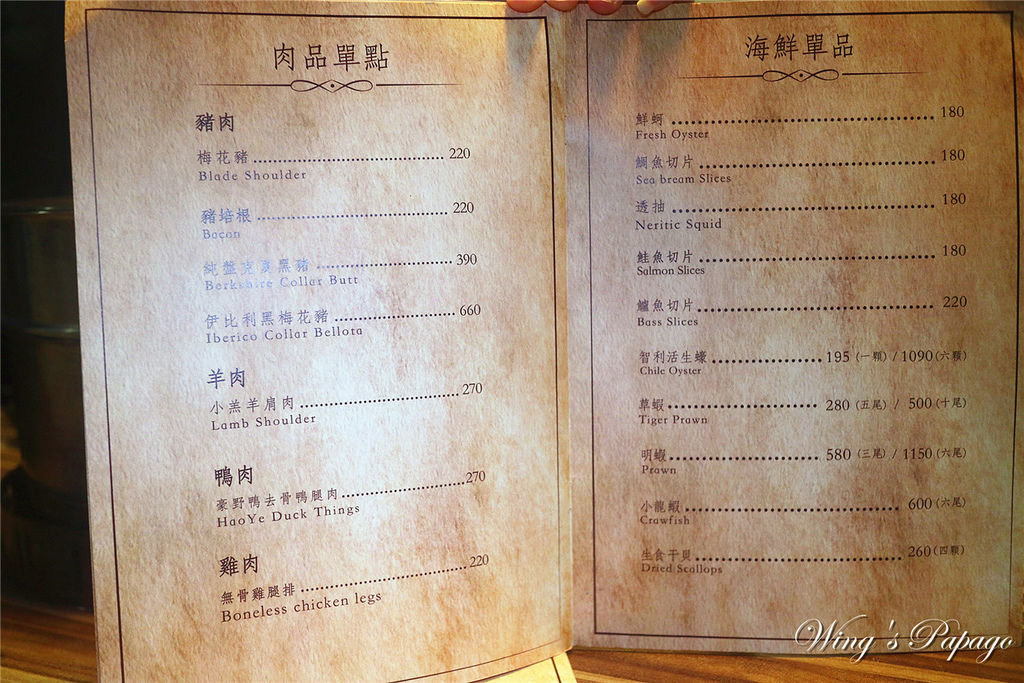 肉品單點
豬肉
梅花豬 220
Blade Shoulder
豬培根 220
Bacon
純盤克夏黑豬 390
Berkshire Collar Butt
伊比利黑梅花豬 660
Iberico Collar Bellota
羊肉
小羔羊肩肉 270
Lamb Shoulder
鴨肉
豪野鴨去骨鴨腿肉 270
HaoYe Duck Things
雞肉
無骨雞腿排 220
Boneless chicken legs
海鮮單品
鮮蚵 180
Fresh Oyster
鯛魚切片 180
Sea bream Slices
透抽 180
Neritic Squid
鮭魚切片 180
Salmon Slices
鱸魚切片 220
Bass Slices
智利活生蠔 195 (一顆) / 1090 (六顆)
Chile Oyster
草蝦 280 (五尾) / 500 (十尾)
Tiger Prawn
明蝦 580 (三尾) / 1150 (六尾)
Prawn
小龍蝦 600 (六尾)
Crawfish
生食干貝 260 (四顆)
Dried Scallops
Wing's Papago